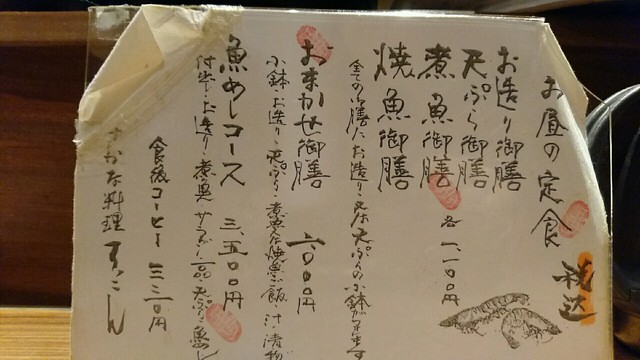 お昼の定食
税込
お造り御膳
天ぷら御膳
煮魚御膳
焼魚御膳
各一、一〇〇円
全ての御膳に、お造り又は天ぷらの小鉢が付きます
おまかせ御膳
二、〇〇〇円
小鉢・お造り・天ぷら・煮魚又は焼魚・ご飯・汁・漬物
魚めしコース 三、五〇〇円
付出し・お造り・煮魚 サラダ・一品・天ぷら・魚めし
食後コーヒー 三三〇円
さかな料理